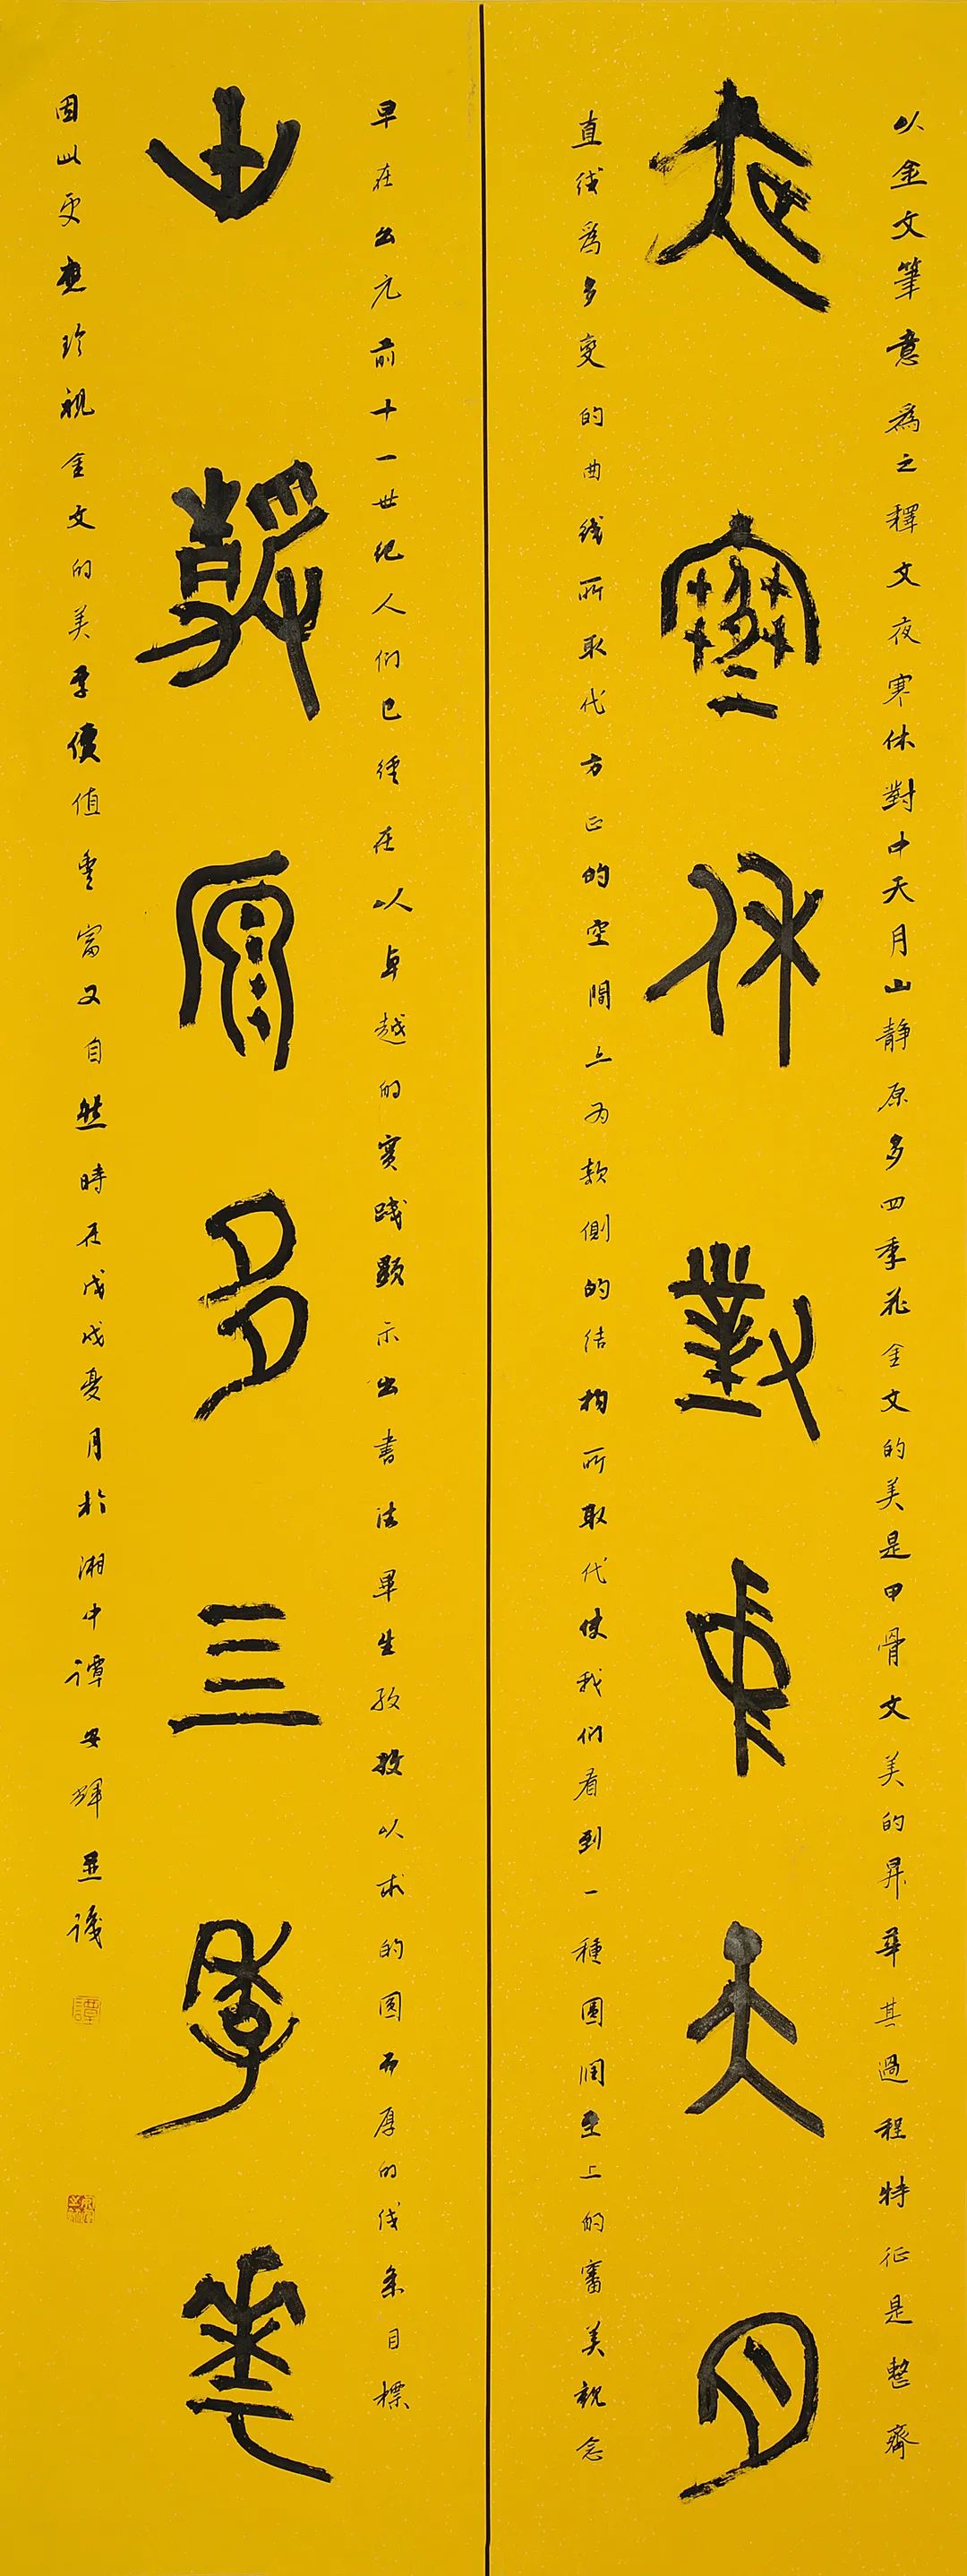 以金文筆意爲之釋文夜寒休對中天月山静原多四季花金文的美是甲骨文美的昇華其過程特征是整齊
夜寒休對中天月
直线爲多變的曲线所取代方正的空間上为款側的结构所取代使我们看到一種圆润至上的審美観念
早在公元前十一世纪人们已經在以卓越的實践顯示出書法畢生孜孜以求的圆而厚的线条目標
山静原多三季華
因此更應珍視金文的美学價值豊富又自然時在戊戌夏月於湘中譚安輝並識
譚